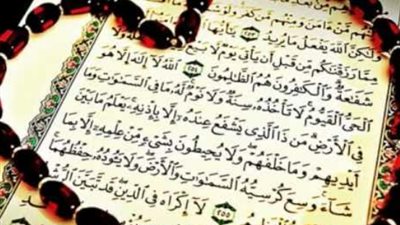 نَهُم مَّنْ ءَامَنَ وَمِنْهُم مَّن كَفَرَ وَلَوْ شَ
وَلَٰكِنَّ ٱللَّهَ يَفْعَلُ مَا يُرِيدُ ٢٥٣ يَٰٓأَيُّهَا
مِمَّا رَزَقْنَٰكُم مِّن قَبْلِ أَن يَأْتِىَ يَوْمٌ لَّا بَيْعٌ وَلَا
شَفَٰعَةٌ وَٱلْكَٰفِرُونَ هُمُ ٱلظَّٰلِمُونَ ٢٥٤ ٱللَّهُ لَآ إِلَٰهَ إِلَّا هُوَ
ٱلْحَىُّ ٱلْقَيُّومُ لَا تَأْخُذُهُۥ سِنَةٌ وَلَا نَوْمٌ لَّهُۥ مَا فِى ٱلسَّمَٰوَٰتِ وَمَا
فِى ٱلْأَرْضِ مَن ذَا ٱلَّذِى يَشْفَعُ عِندَهُۥٓ إِلَّا بِإِذْنِهِۦ يَعْلَمُ مَا بَيْنَ
أَيْدِيهِمْ وَمَا خَلْفَهُمْ وَلَا يُحِيطُونَ بِشَىْءٍ مِّنْ عِلْمِهِۦٓ إِلَّا بِمَا
شَآءَ وَسِعَ كُرْسِيُّهُ ٱلسَّمَٰوَٰتِ وَٱلْأَرْضَ وَلَا يَـُٔودُهُۥ حِفْظُهُمَا
٢٥٥ لَآ إِكْرَاهَ فِى ٱلدِّينِ قَد تَّبَيَّنَ ٱلرُّشْ